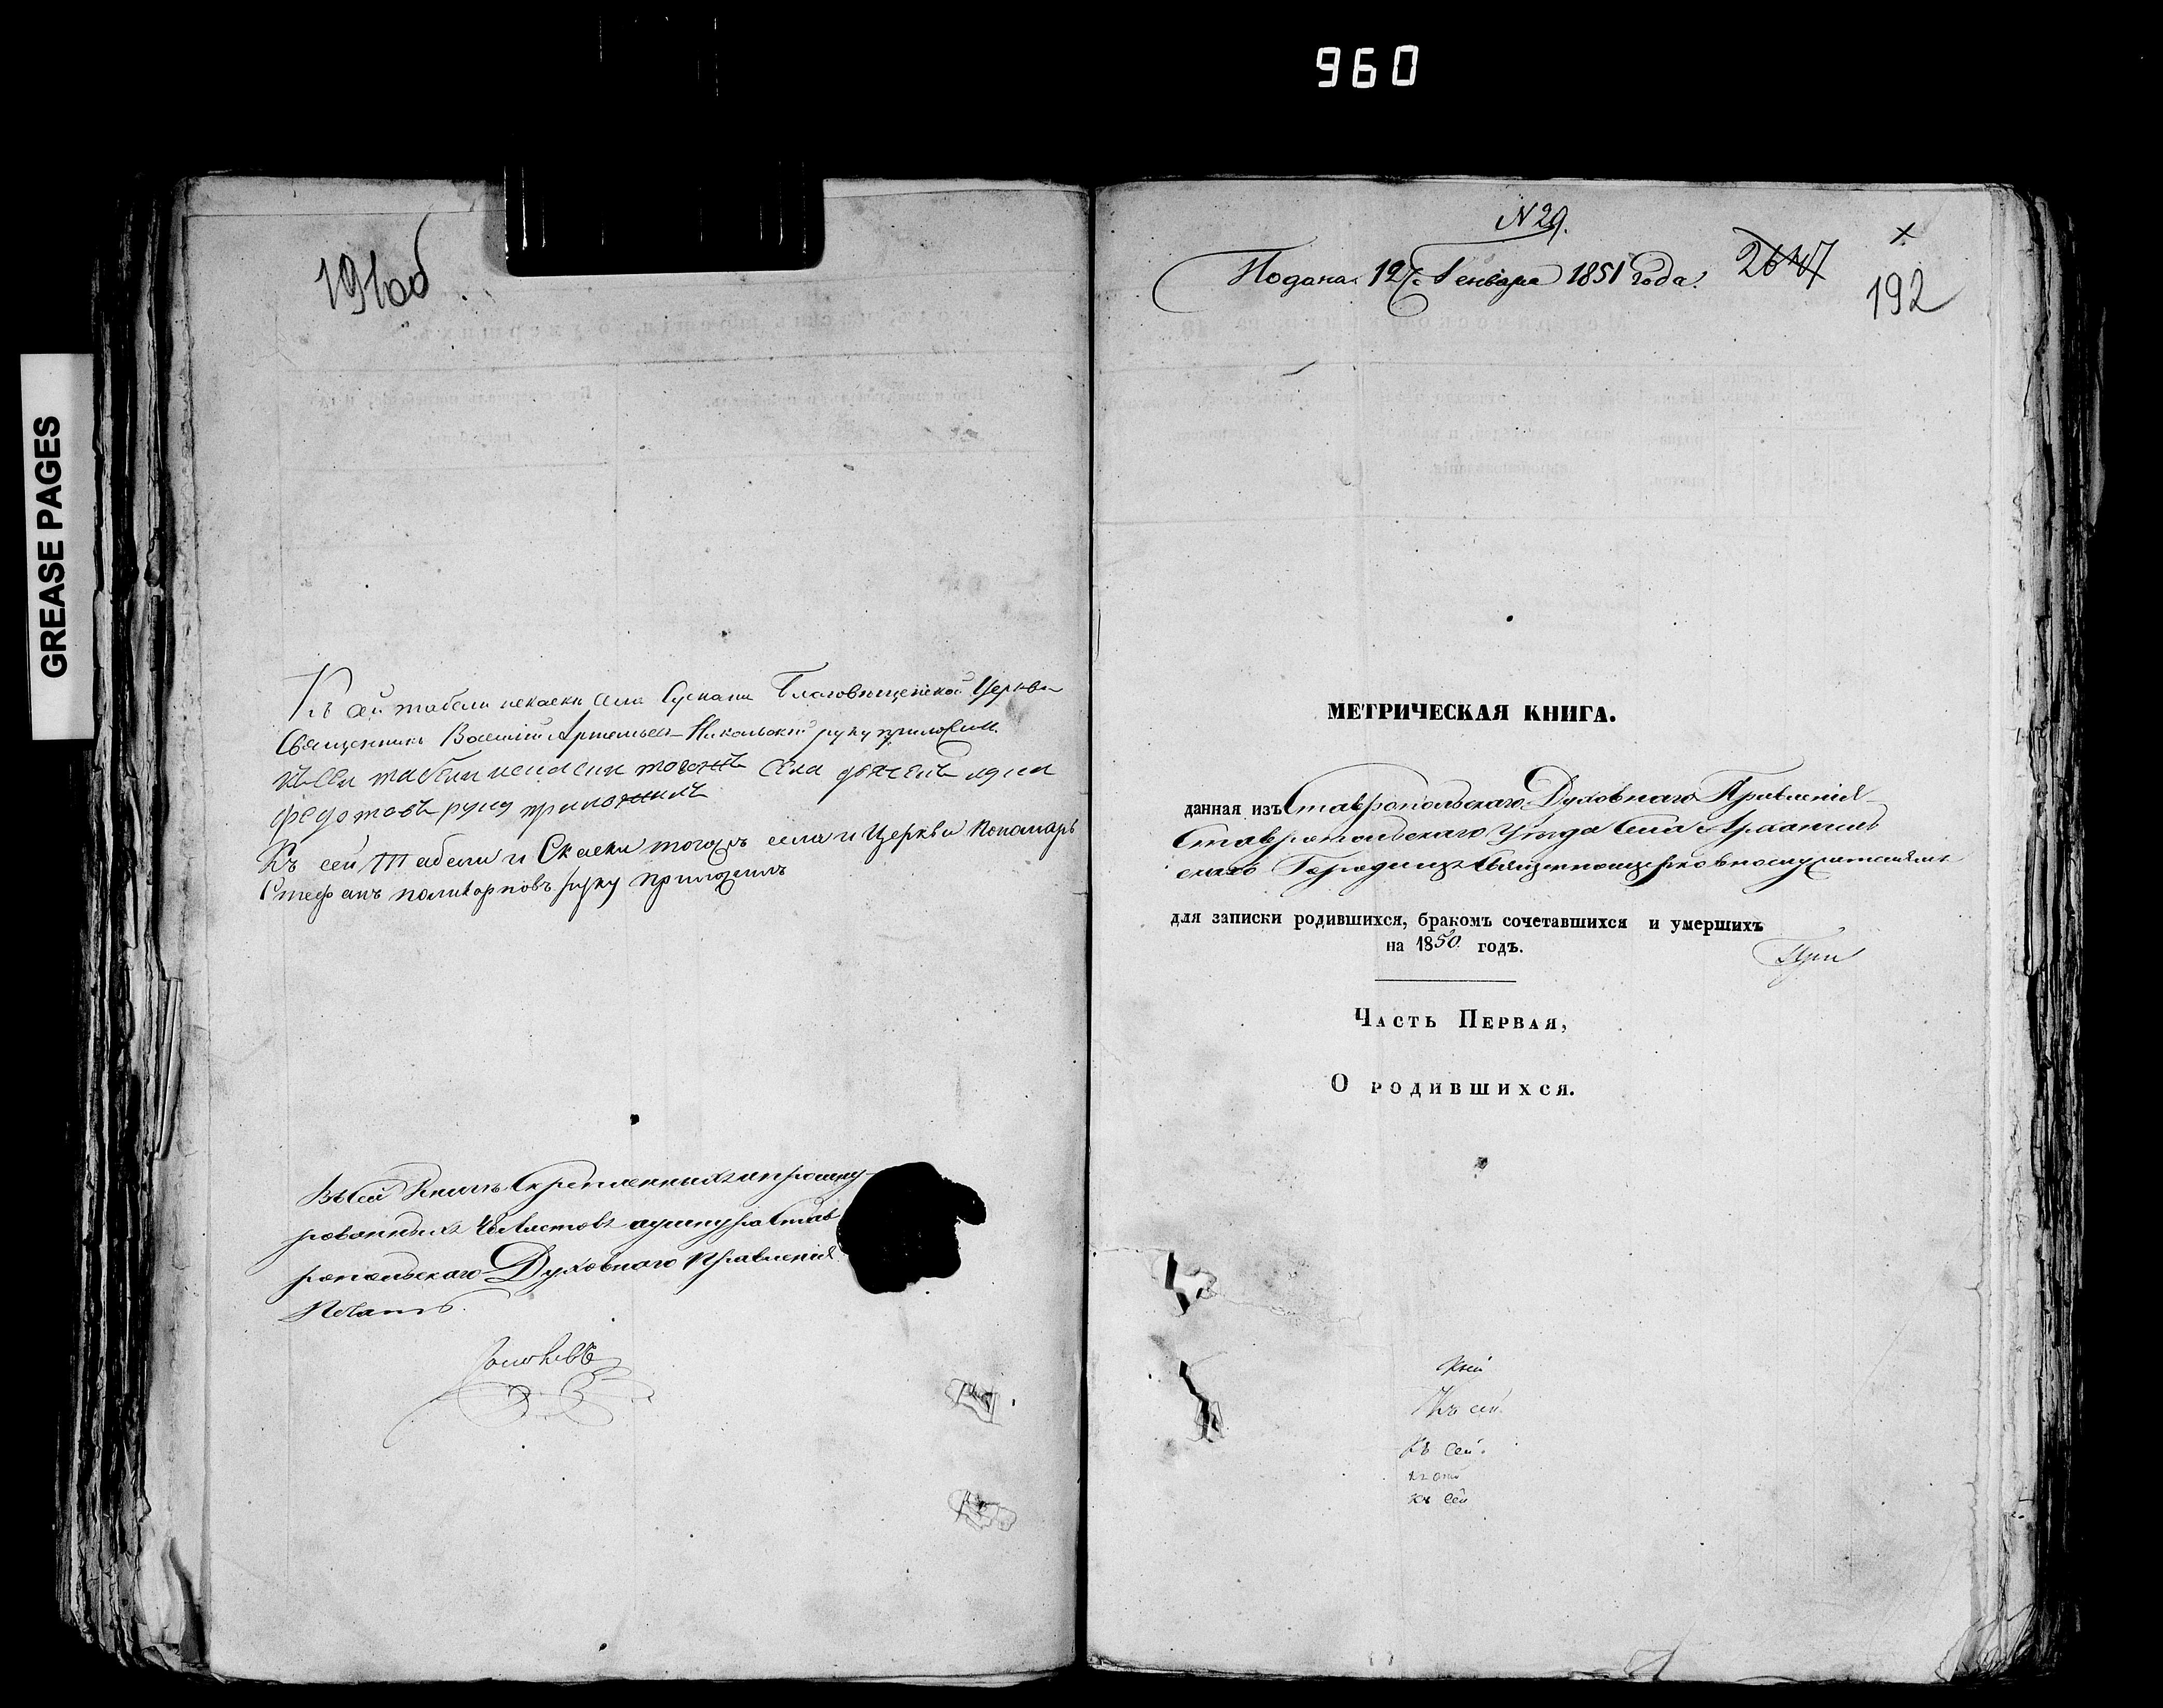 960
GREASE PAGES
191об
Къ сей табели и скаски села Сускана Благовещенской Церкви
Священникъ Василій Артемьевъ Никольскій руку приложилъ.
Къ сей табели и скаски тогожъ села дьячекъ
Федотовъ руку приложилъ
Къ сей Табели и Скаски тогожъ села и Церкви Пономарь
Стефанъ поликарповъ руку приложилъ
Въ сей Книгѣ Скрепленныхъ и прошну-
рованныхъ листовъ а у шнура Став
ропольскаго Духовнаго Правленія
Печать.
N 29.
Подана 12 Генваря 1851 года.
2647
×
192
МЕТРИЧЕСКАЯ КНИГА.
данная изъ Ставропольскаго Духовнаго Правленія
Ставропольскаго уѣзда Села Архангель
скаго Городища Священноцерковнослужителямъ
для записки родившихся, бракомъ сочетавшихся и умершихъ
на 1850 годъ.
При
Часть Первая,
О родившихся.
Къ сей
Къ сей
Къ сей
Къ сей